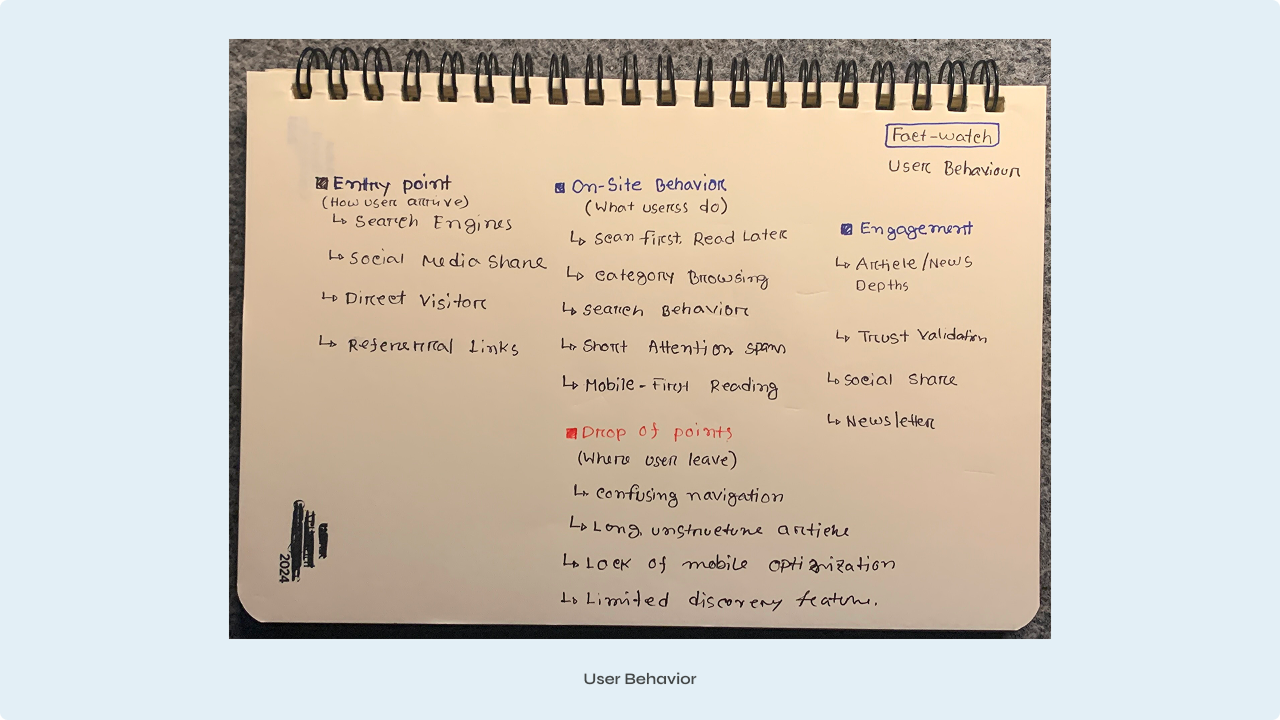 Fact-watch
User Behaviour
Entry point
(How user arrive)
Search Engines
Social Media Share
Direct Visitor
Refererral Links
On-Site Behavior
(What userss do)
Scan First, Read Later
Category Browsing
Search Behavior
Short Attention span
Mobile-First Reading
Drop of points
(Where user leave)
Confusing navigation
Long, unstructure article
Lack of mobile optimization
Limited discovery feature.
Engagement
Article/News
Depths
Trust Validation
Social Share
Newsletter
2024
User Behavior